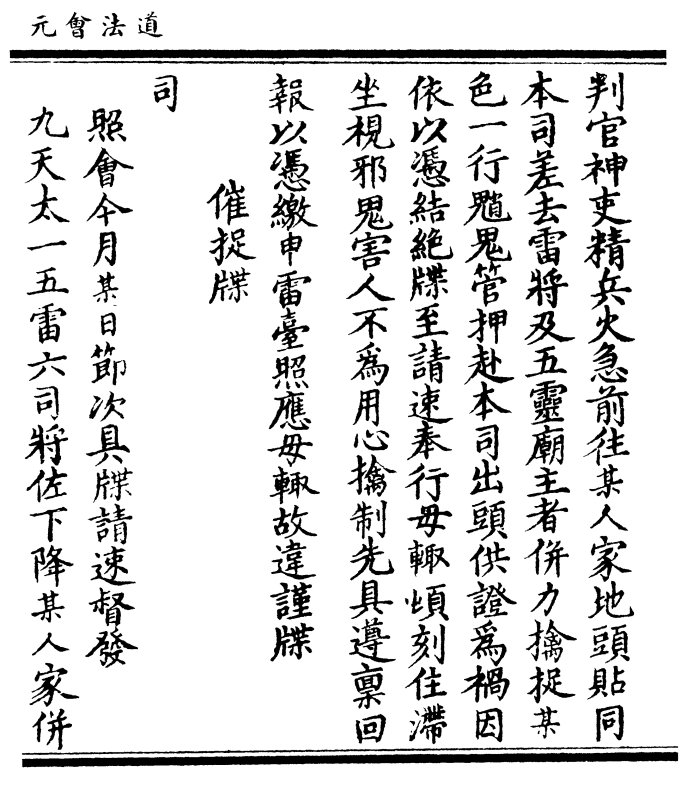 道法會元
判官神吏精兵火急前往某人家地頭貼同
本司差去雷將及五靈廟主者併力擒捉某
色一行魈鬼管押赴本司出頭供證為禍因
依以憑結絕牒至請速奉行毋輒頃刻住滯
坐視邪鬼害人不為用心擒制先具遵稟回
報以憑繳申雷臺照應毋輒故違謹牒
催捉牒
司
照會今月某日節次具牒請速督發
九天太一五雷六司將佐下降某人家併